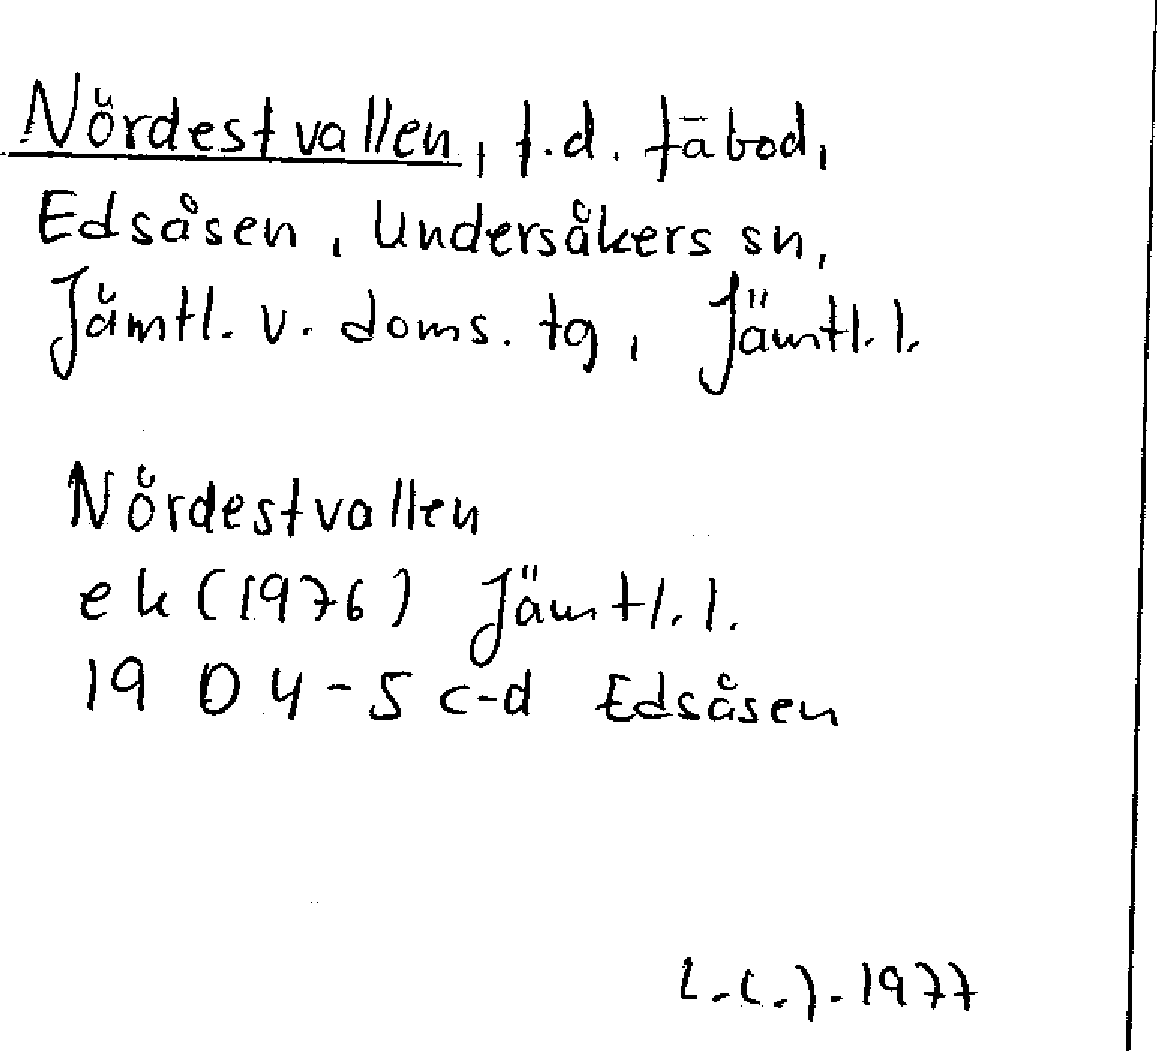 Nördestvallen, f.d. fäbod,
Edsåsen, Undersåkers sn,
Jämtl. v. doms. tg, Jämtl. l.
Nördestvallen
ek (1976) Jämtl. l.
19 D 4-5 c-d Edsåsen
1977